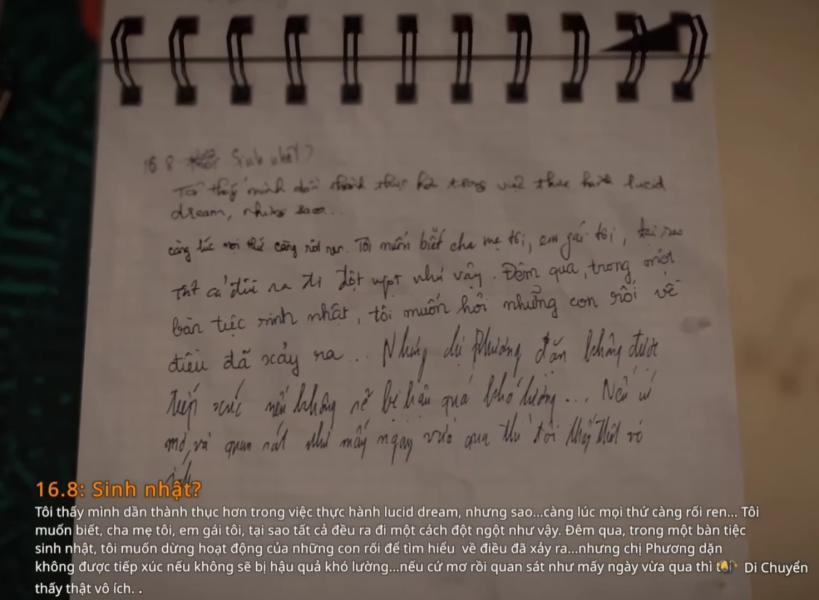 16.8 Sinh nhật?
Tôi thấy mình dần thành thục hơn trong việc thực hành lucid
dream, nhưng sao...
càng lúc mọi thứ càng rối ren. Tôi muốn biết cha mẹ tôi, em gái tôi, tại sao
tất cả đều ra đi đột ngột như vậy. Đêm qua, trong một
bàn tiệc sinh nhật, tôi muốn hỏi những con rối về
điều đã xảy ra... Nhưng chị Phương dặn không được
tiếp xúc nếu không sẽ bị hậu quả khó lường... Nếu cứ
mơ và quan sát như mấy ngày vừa qua thì tôi thấy thật vô
ích.
16.8: Sinh nhật?
Tôi thấy mình dần thành thục hơn trong việc thực hành lucid dream, nhưng sao...càng lúc mọi thứ càng rối ren... Tôi
muốn biết, cha mẹ tôi, em gái tôi, tại sao tất cả đều ra đi một cách đột ngột như vậy. Đêm qua, trong một bàn tiệc
sinh nhật, tôi muốn dừng hoạt động của những con rối để tìm hiểu  về điều đã xảy ra...nhưng chị Phương dặn
không được tiếp xúc nếu không sẽ bị hậu quả khó lường...nếu cứ mơ rồi quan sát như mấy ngày vừa qua thì tôi Di Chuyển
thấy thật vô ích. .